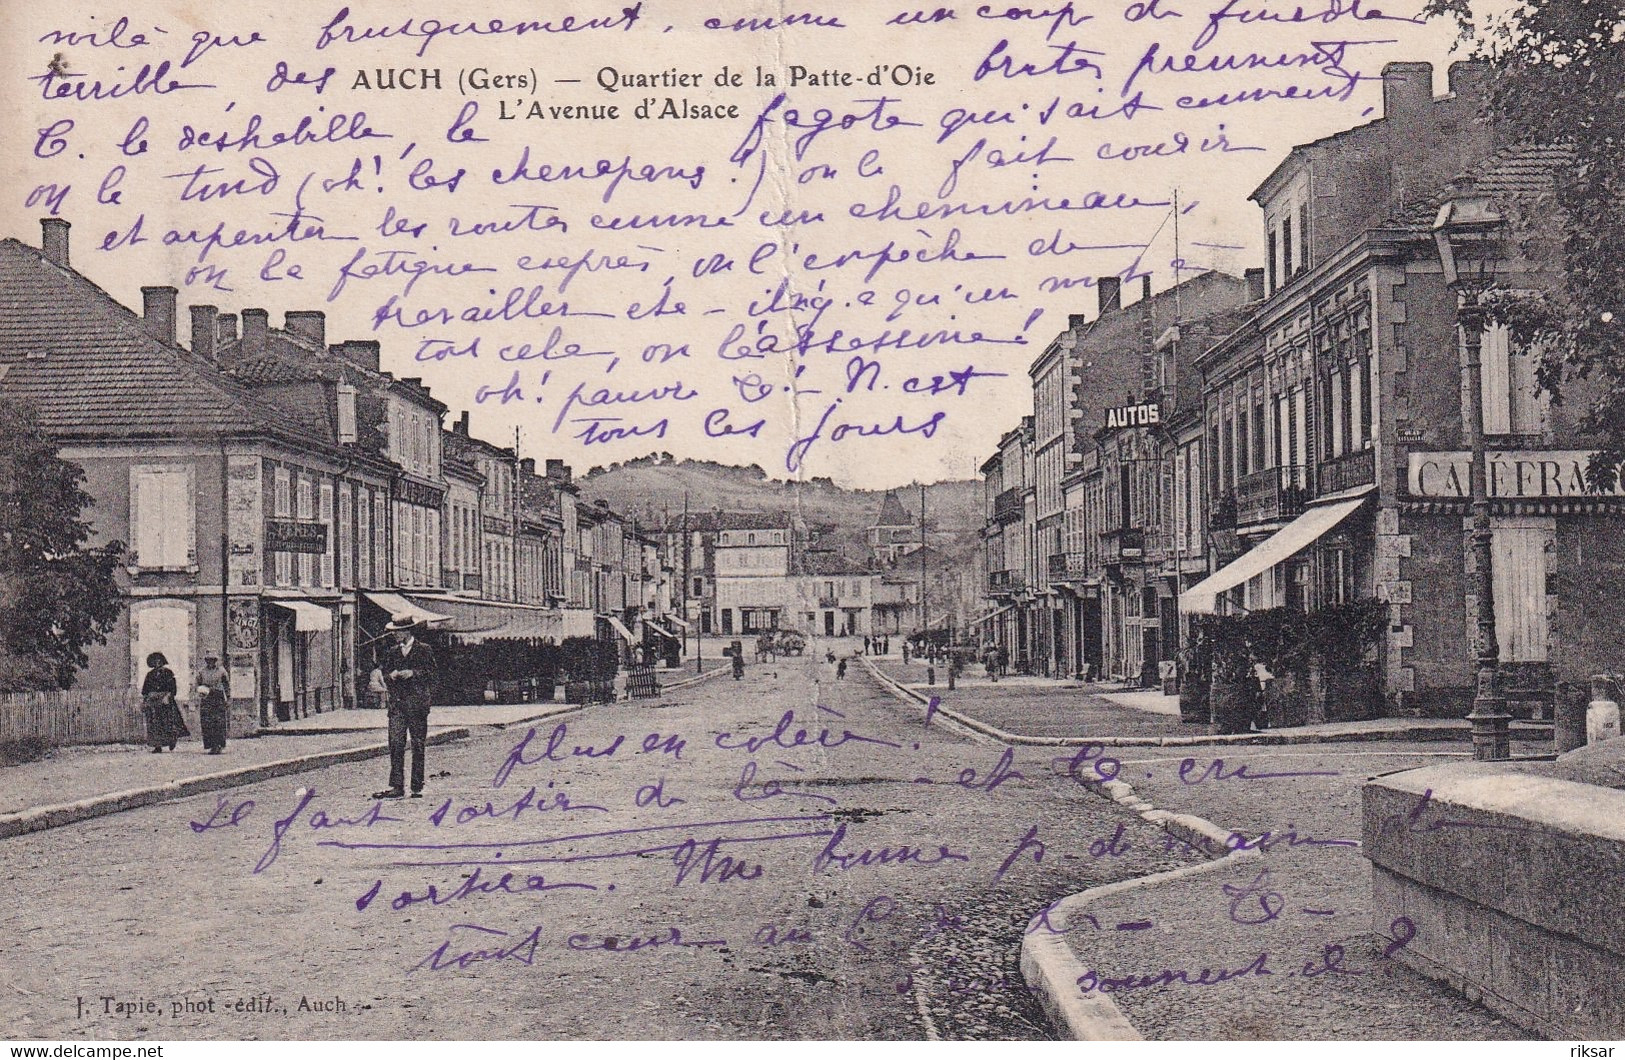 voilà que brusquement, comme un coup de foudre
terrible, des brutes prennent
AUCH (Gers) — Quartier de la Patte-d'Oie
L'Avenue d'Alsace
C. le déshabille, le fagote qui sait comment,
on le tond (oh! les chenapans!) on le fait courir
et arpenter les routes comme un chemineau,
on le fatigue exprès, on l'empêche de
travailler etc – il n'y a qu'un mot à
tout cela, on l'assassine!
oh! pauvre C! – N. est
tous les jours
plus en colère! – et le C. en
Il faut sortir de là
sortira. Une bonne p. de main de
tout cœur au C. de L. – C –
s'en souvient-il?
AUTOS
CAFÉ FRAN
J. Tapie, phot-édit., Auch
riksar